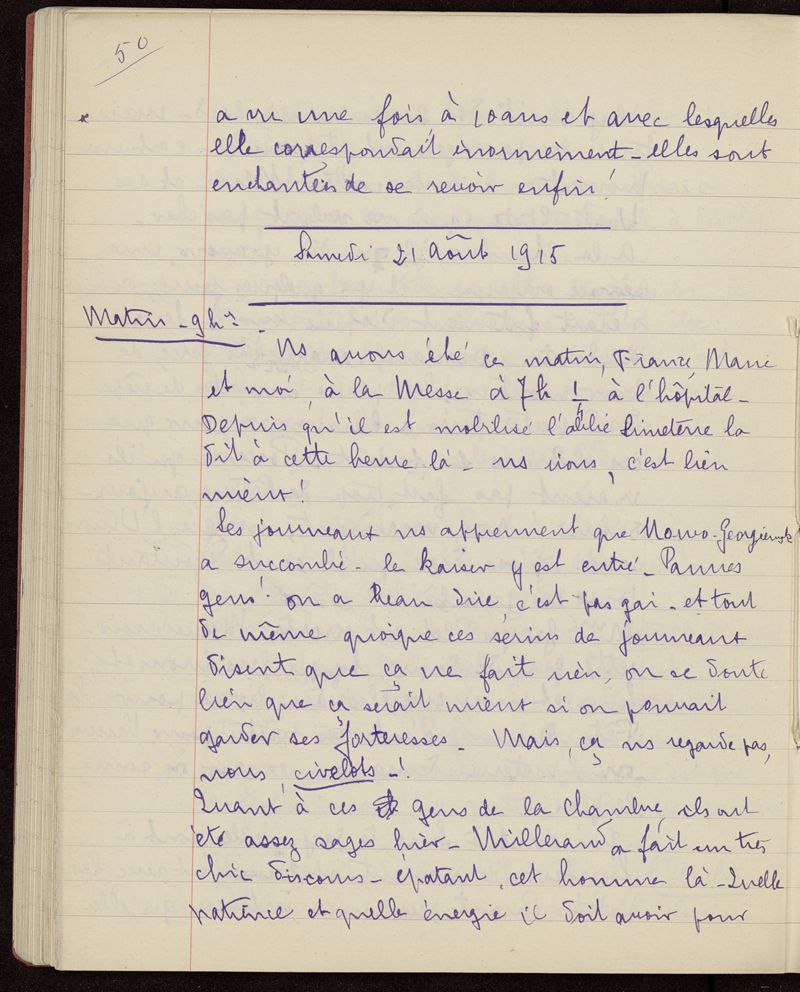 50
a vu une fois à 10 ans et avec lesquelles
elle correspondait énormément - elles sont
enchantées de se revoir enfin!
Samedi 21 Août 1915
Matin - 9 hrs -
Ns avons été ce matin, France, Marie
et moi, à la Messe à 7h ¼ à l'hôpital -
Depuis qu'il est mobilisé l'abbé la
dit à cette heure là - ns irons, c'est bien
mieux!
Les journeaux ns apprennent que Nowo-Georgiewsk
a succombé - le Kaiser y est entré - Pauvres
gens! on a beau dire, c'est pas gai - et tout
de même quoique ces serins de journeaux
disent que ça ne fait rien, on se doute
bien que ça serait mieux si on pouvait
garder ses forteresses - Mais, ça ns regarde pas,
nous, civelots -!
Quant à ces gens de la Chambre, ils ont
été assez sages hier - Millerand a fait un très
chic discours - épatant, cet homme là - Quelle
patience et quelle énergie il doit avoir pour